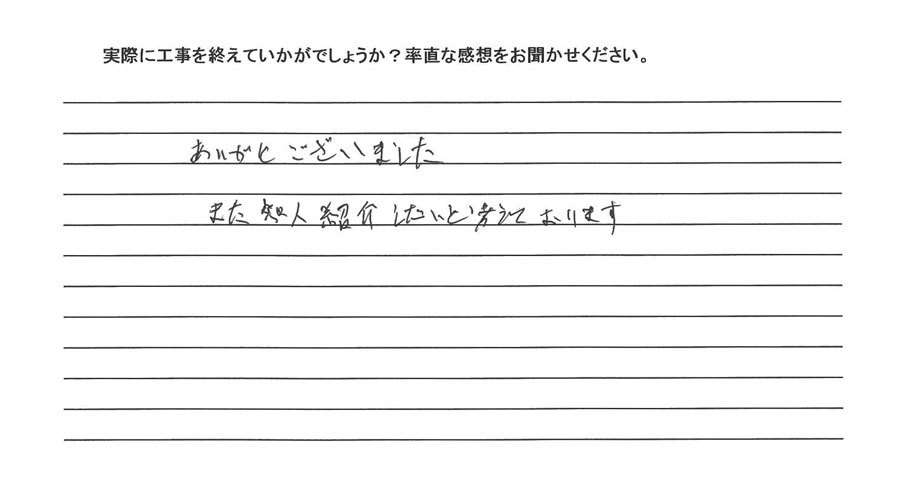 実際に工事を終えていかがでしょうか？率直な感想をお聞かせください。
ありがとございました
また知人紹介したいと考えております